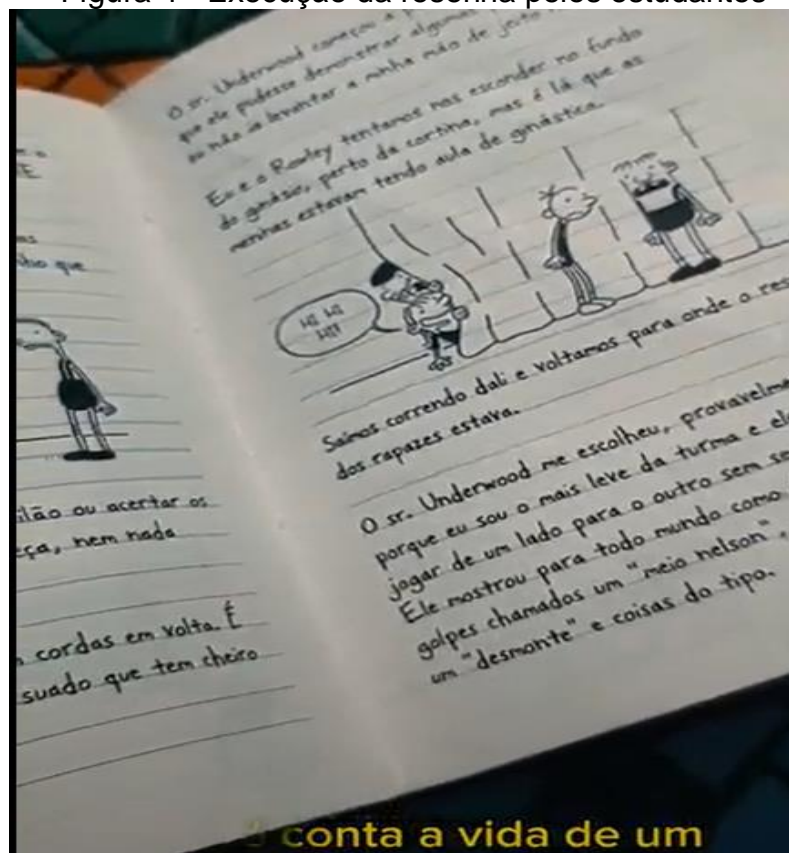 Execução da resenha pelos estudantes
O sr. Underwood começou a
que ele pudesse demonstrar algumas
eu não ia levantar a minha mão de jeito
Eu e o Rowley tentamos nos esconder no fundo
do ginásio, perto da cortina, mas é lá que as
meninas estavam tendo aula de ginástica.
HI HI
HI!
Saímos correndo dali e voltamos para onde o res
dos rapazes estava.
O sr. Underwood me escolheu, provavelme
porque eu sou o mais leve da turma e el
jogar de um lado para o outro sem se
Ele mostrou para todo mundo como
golpes chamados um "meio nelson",
um "desmonte" e coisas do tipo.
que
ilão ou acertar os
eça, nem nada
cordas em volta. É
suado que tem cheiro
conta a vida de um